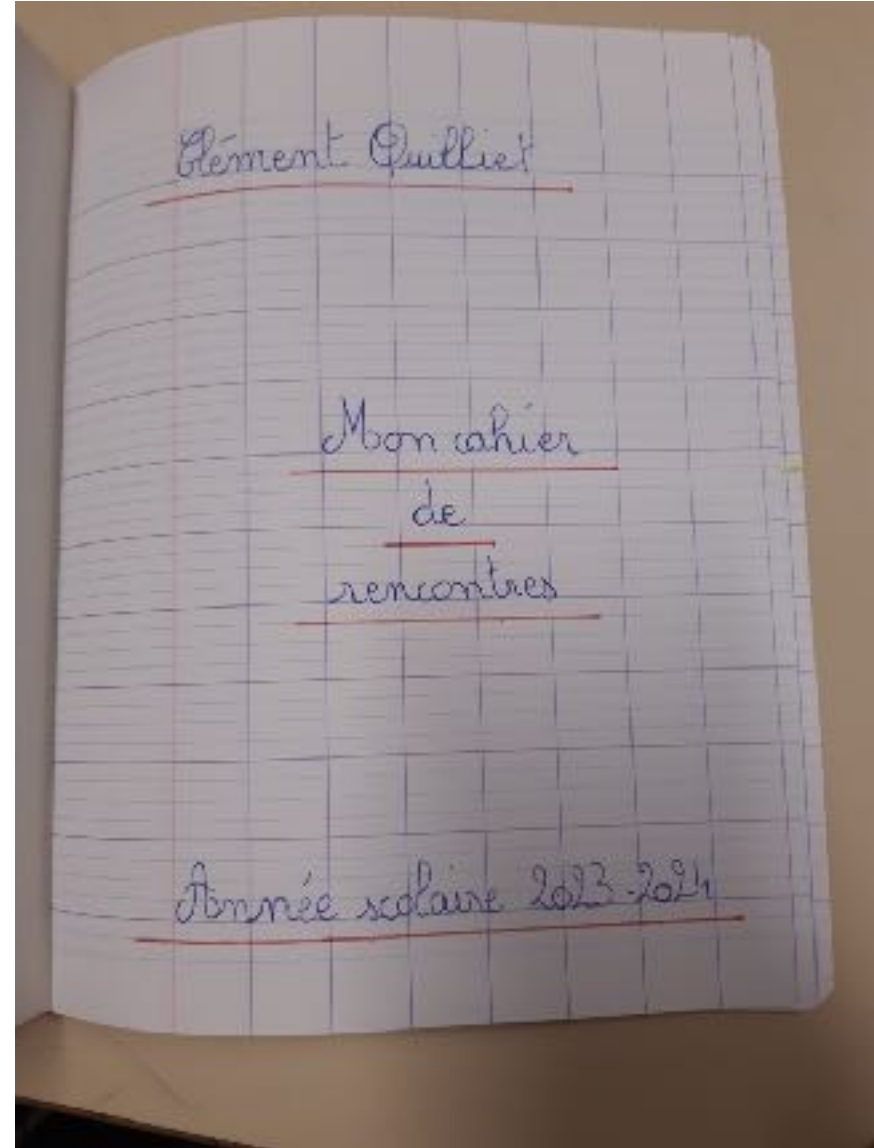 Clément Quilliet
Mon cahier
de
rencontres
Année scolaire 2023-2024